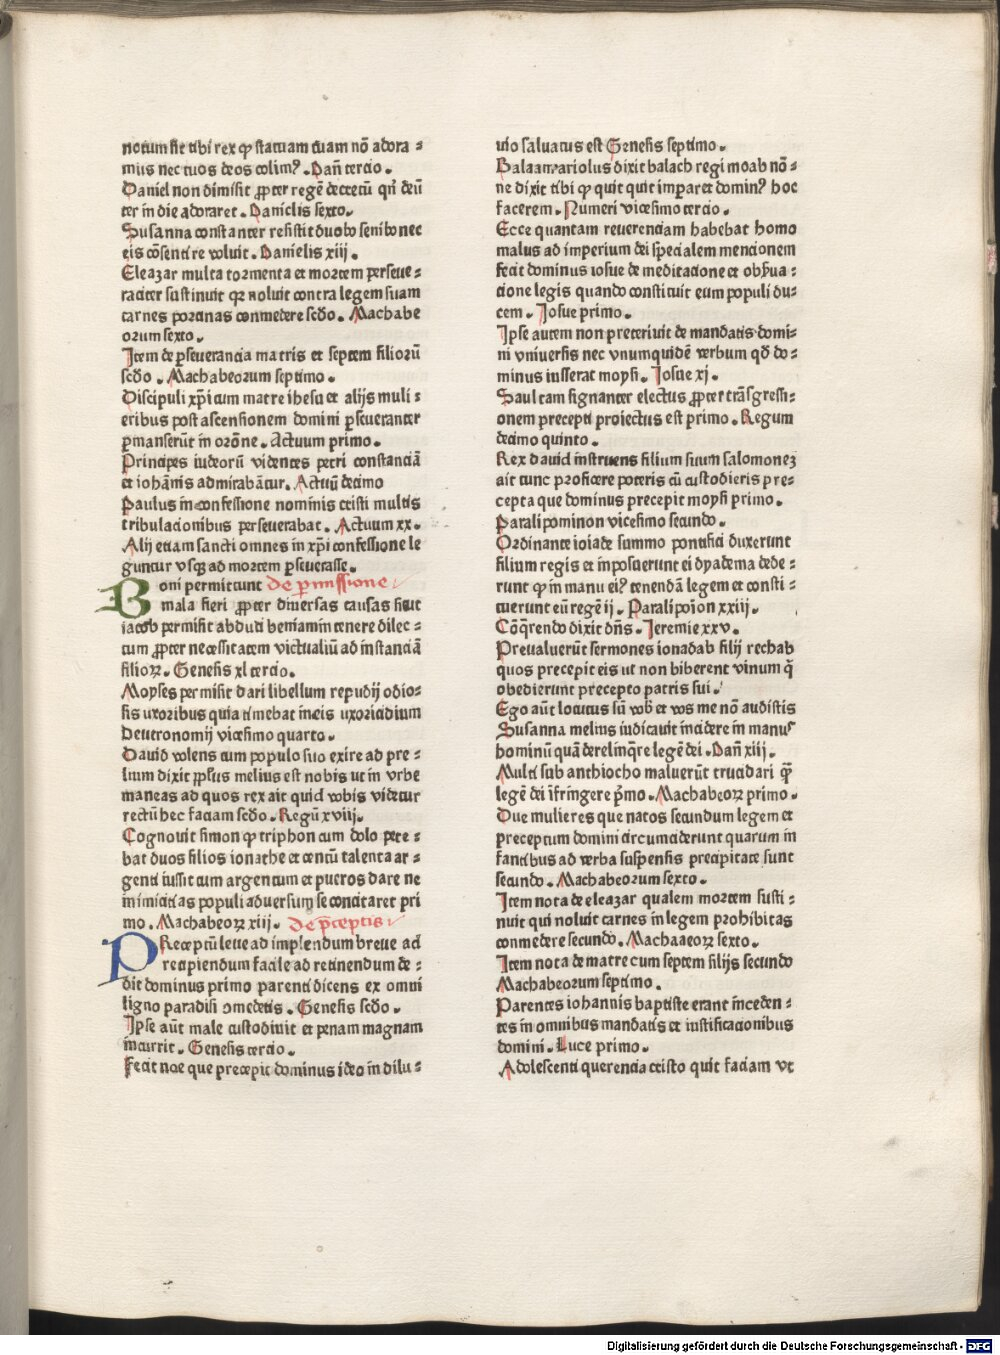 notum sit tibi rex ꝙ statuam tuam nō adora ⸗
mus nec tuos deos colimꝰ . Dan̄ tercio .
Daniel non dimisit ꝓpter regē decretū qn̄ deū
ter in die adoraret . Danielis sexto .
Susanna constanter restitit duobꝰ senibꝰ nec
eis cōsentire voluit . Danielis xiij .
Eleazar multa tormenta et mortem perseue⸗
raciter sustinuit qꝛ noluit contra legem suam
carnes porcinas commedere scd̄o . Machabe
orum sexto .
Item de ꝑseuerancia matris et septem filiorū
scd̄o . Machabeorum septimo .
Discipuli xp̄i cum matre ihesu et alijs muli⸗
eribus post ascensionem domini ꝑseueranter
ꝑmanserūt in orōne . Actuum primo .
Principes iudeorū videntes petri constanciā
et iohānis admirabātur . Actuū decimo
Paulus in confessione nominis cristi multis
tribulacionibus perseuerabat . Actuum xx .
Alij etiam sancti omnes in xp̄i confessione le
guntur vsqꝫ ad mortem ꝑseuerasse .
Boni permittunt de ꝑmissione
mala fieri ꝓpter diuersas causas sicut
iacob permisit abduci beniamin tenere dilec⸗
tum ꝓpter necessitatem victualiū ad instanciā
filioꝝ . Genesis xl tercio .
Moyses permisit dari libellum repudij odio⸗
sis uxoribus quia timebat in eis uxoricidium
Deutronomij vicesimo quarto .
Dauid volens cum populo suo exire ad pre⸗
lium dixit ꝓplus melius est nobis ut in vrbe
maneas ad quos rex ait quid vobis videtur
rectū hec faciam scd̄o . Regū xviij .
Cognouit simon ꝙ triphon cum dolo pete⸗
bat duos filios ionathe et centū talenta ar⸗
genti iussit cum argentum et pueros dare ne
inimicitias populi aduersum se concitaret pri
mo . Machabeoꝝ xiij . de p̄ceptis
PReceptū leue ad implendum breue ad
recipiendum facile ad retinendum de⸗
dit dominus primo parenti dicens ex omni
ligno paradisi ꝯmedetis . Genesis scd̄o .
Ipse aūt male custodiuit et penam magnam
incurrit . Genesis tercio .
Fecit noe que precepit dominus ideo in dilu⸗
uio saluatus est Genesis septimo .
Balaam ariolus dixit balach regi moab nō⸗
ne dixit tibi ꝙ quit quit imparet dominꝰ hoc
facerem . Numeri vicesimo tercio .
Ecce quantam reuerenciam habebat homo
malus ad imperium dei specialem mencionem
fecit dominus iosue de meditacione et obserua⸗
cione legis quando constituit eum populi du⸗
cem . Josue primo .
Ipse autem non preteriuit de mandatis domi⸗
ni vniuersis nec vnumquidē verbum qd̄ do⸗
minus iusserat moysi . Josue xj .
Saul tam signanter electus ꝓpter trāsgressi⸗
onem precepti proiectus est primo . Regum
decimo quinto .
Rex dauid instruens filium suum salomoneꝫ
ait tunc proficere poteris cū custodieris pre⸗
cepta que dominus precepit moysi primo .
Paralipominon vicesimo secundo .
Ordinante ioiade summo pontifici duxerunt
filium regis et imposuerunt ei dyadema dede⸗
runt ꝙ in manu eiꝰ tenendā legem et consti⸗
tuerunt eū regē ij . Paralipoīon xxiij .
Cōq̄rendo dixit dn̄s . Jeremie xxv .
Preualuerūt sermones ionadab filij rechab
quos precepit eis ut non biberent vinum q̄
obedierunt precepto patris sui .
Ego aūt locutus sū vob et vos me nō audistis
Susanna melius iudicauit incidere in manus
hominū quā derelinq̄re legē dei . Dan̄ xiij .
Multi sub anthiocho maluerūt trucidari q̄
legē dei īfringere p̄mo . Machabeoꝝ primo .
Due mulieres que natos secundum legem et
preceptum domini circumciderunt quarum in
fantibus ad verba suspensis precipitate sunt
secundo . Machabeorum sexto .
Item nota de eleazar qualem mortem susti⸗
nuit qui noluit carnes in legem prohibitas
commedere secundo . Machaaeoꝝ sexto .
Item nota de matre cum septem filijs secundo
Machabeorum septimo .
Parentes iohannis baptiste erant inceden⸗
tes in omnibus mandatis et iustificacionibus
domini . Luce primo .
Adolescenti querencia cristo quit faciam vt
Digitalisierung gefördert durch die Deutsche Forschungsgemeinschaft - DFG